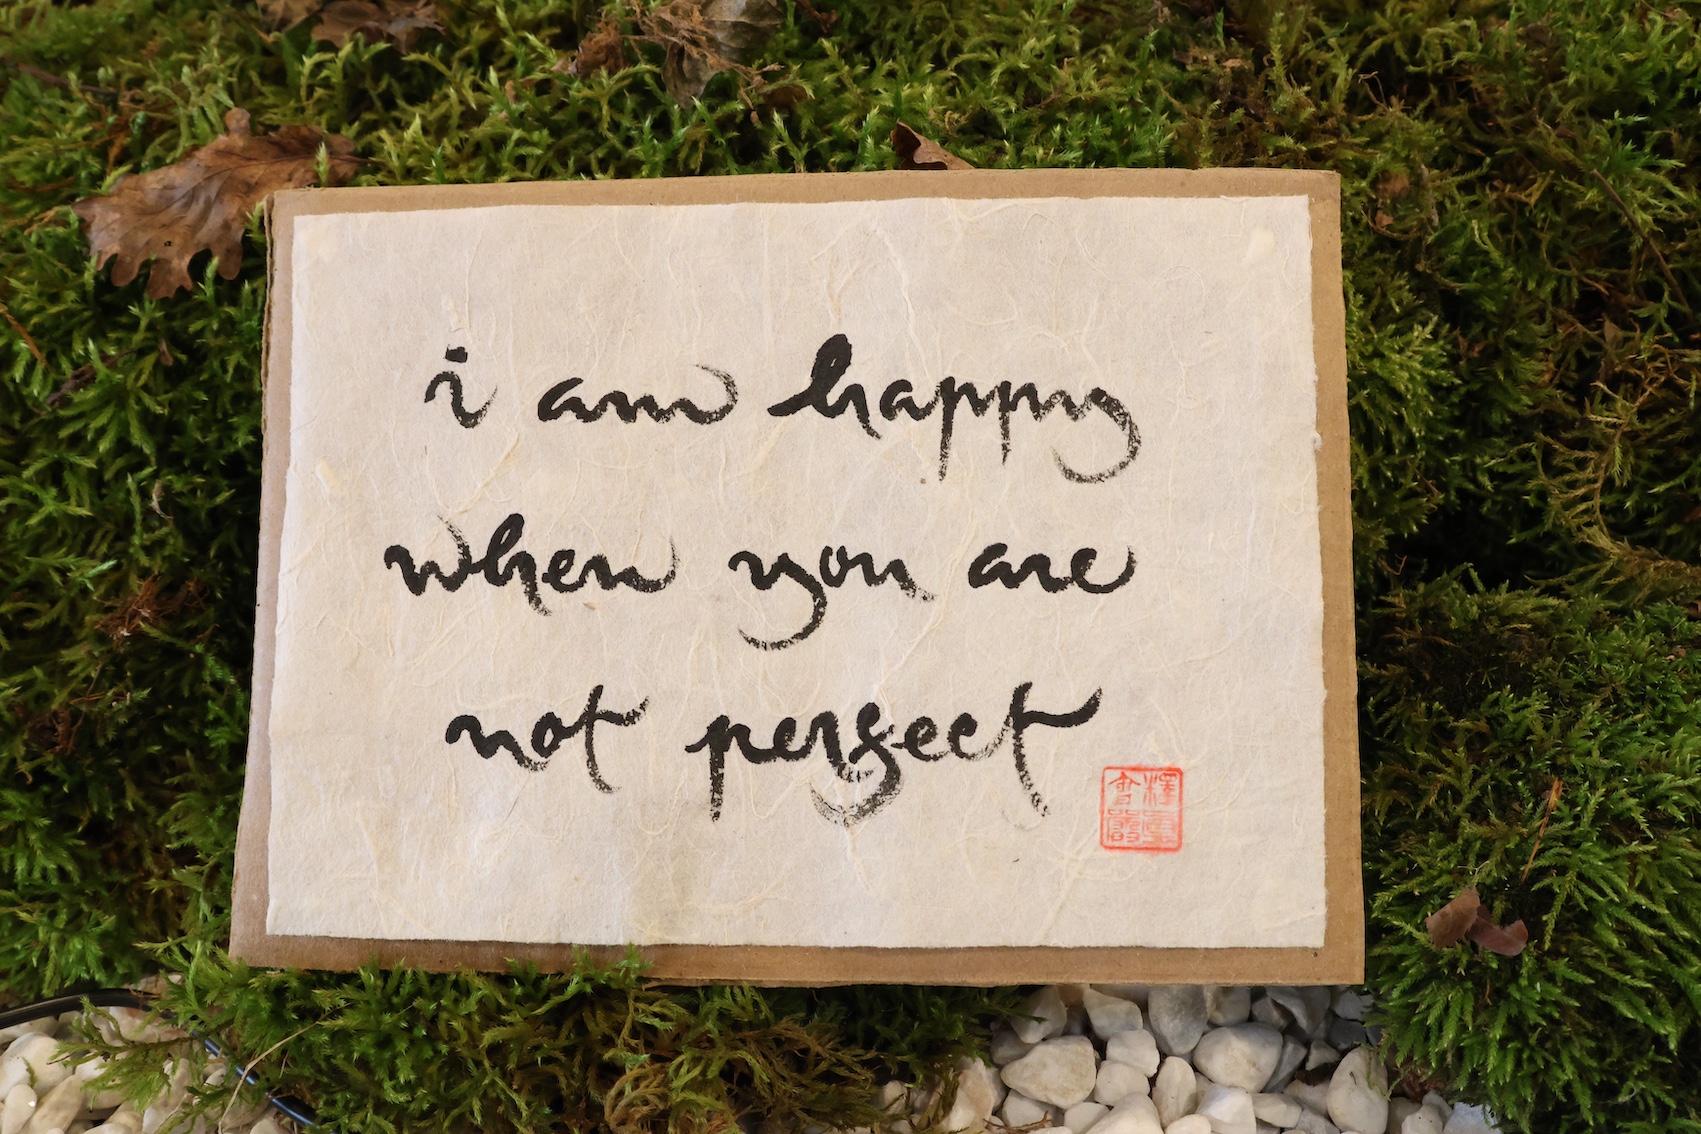 i am happy
when you are
not perfect